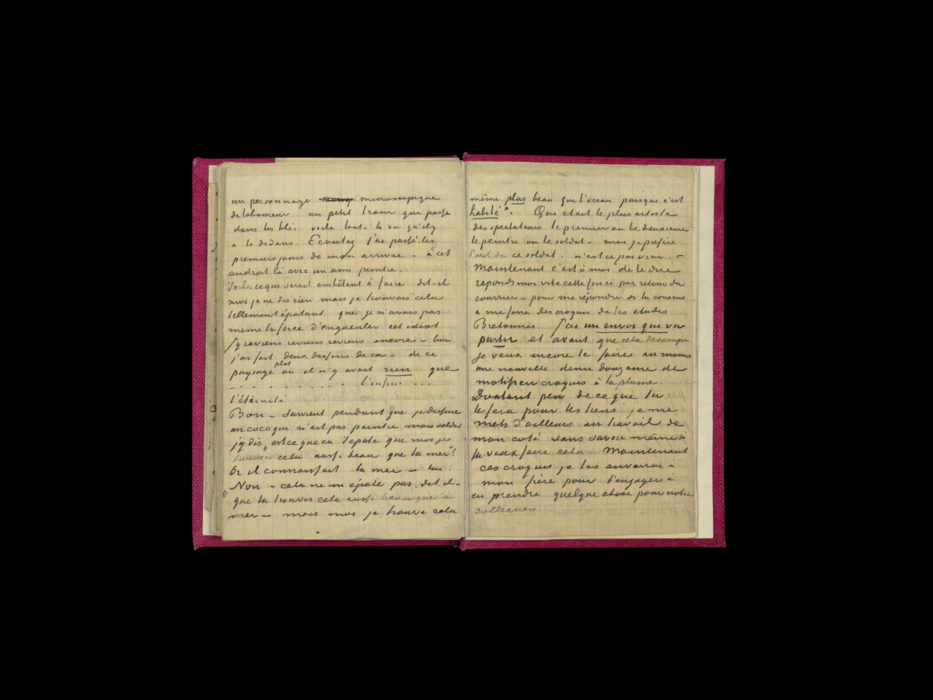 un personnage microscopique
de laboureur un petit train qui passe
dans les blés voila toute la vie qu'il y
a la dedans. Ecoutez j'ai passé les
premiers jours de mon arrivée – à cet
endroit là avec un ami peintre.
Voila ce que serait embêtant à faire dit-il
moi je ne dis rien mais je trouvais cela
tellement épatant que je n'avais pas
meme la force d'engueuler cet idiot
J'y reviens reviens reviens encore – bon
j'ai fait deux dessins de ca – de ce
paysage plat où il n'y avait rien que
. . . . . . . . . . . l'infini ...
l'éternité.
Bon – survient pendant que je dessine
un coco qui n'est pas peintre mais soldat
j'y dis, est ce que ca t'epate que moi je
trouve cela aussi beau que la mer?
Or il connaissait la mer – lui
"Non – cela ne m'épate pas – dit-il –
que tu trouves cela aussi beau que la
mer – mais moi je trouve cela
même plus beau que l'océan puisque c'est
habité".. Qui etait le plus artiste
des spectateurs le premier ou le deuxieme
le peintre ou le soldat – moi je prefère
l'oeil de ce soldat. n'est ce pas vrai. –
Maintenant c'est à moi de te dire
reponds moi vite cette fois ci par retour du
courrier – pour me répondre si tu consens
a me faire des croquis de tes etudes
Bretonnes. J'ai un envoi qui va
partir et avant que cela decampe
je veux encore te faire au moins
une nouvelle demi douzaine de
motifs en croquis à la plume.
Doutant peu de ce que tu
le fera pour les tiens je me
mets d'ailleurs au travail de
mon coté sans savoir même si
tu veux faire cela Maintenant
ces croquis je les enverrai à
mon frère pour l'engager à
en prendre quelque chose pour notre
collection.